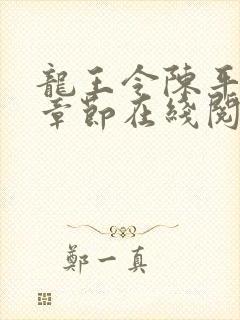 龍王令陳平
章節在綫閱
鄭一真